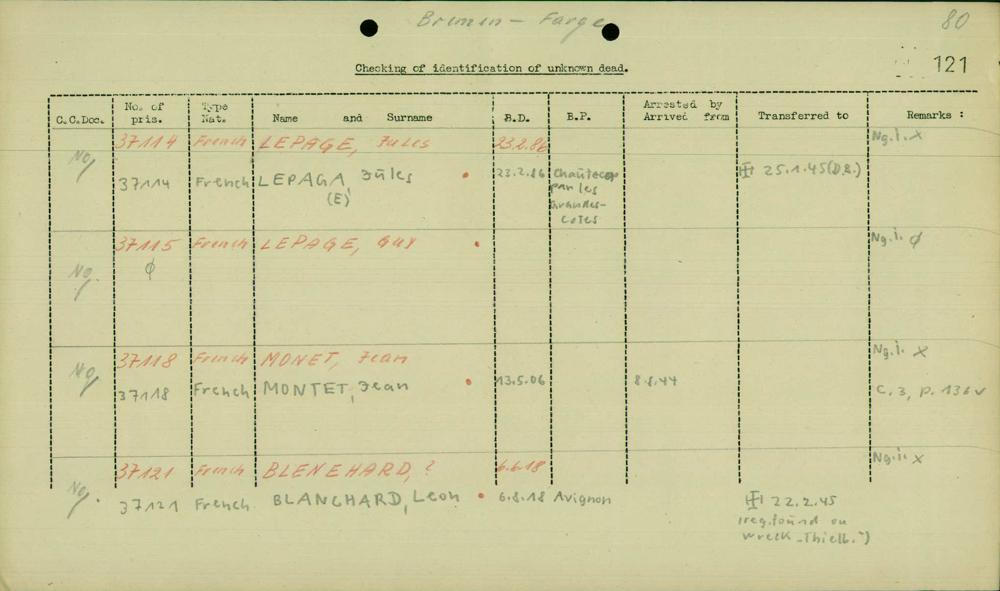 Bremen - Farge
80
121
Checking of identification of unknown dead.
C.C.Doc. No. of pris. Type Nat. Name and Surname B.D. B.P. Arrested by Arrived from Transferred to Remarks :
No, 37114 French LEPAGE, Jules 23.2.86 Ng.i. x
37114 French LEPAGA, Jules 23.2.86 par les 25.1.45 (D.B.)
(E) Grandes-
Cotes
No, 37115 French LEPAGE, Guy Ng.i. ø
ø
No, 37118 French MONET, Jean Ng.i. x
37118 French MONTET, Jean 13.5.06 8.8.44 C. 3, p. 136 v
No, 37121 French BLENEHARD, ? 6.6.18 Ng.i. x
37121 French BLANCHARD, Leon 6.8.18 Avignon 22.2.45
(reg. found on
wreck "Thielb.")